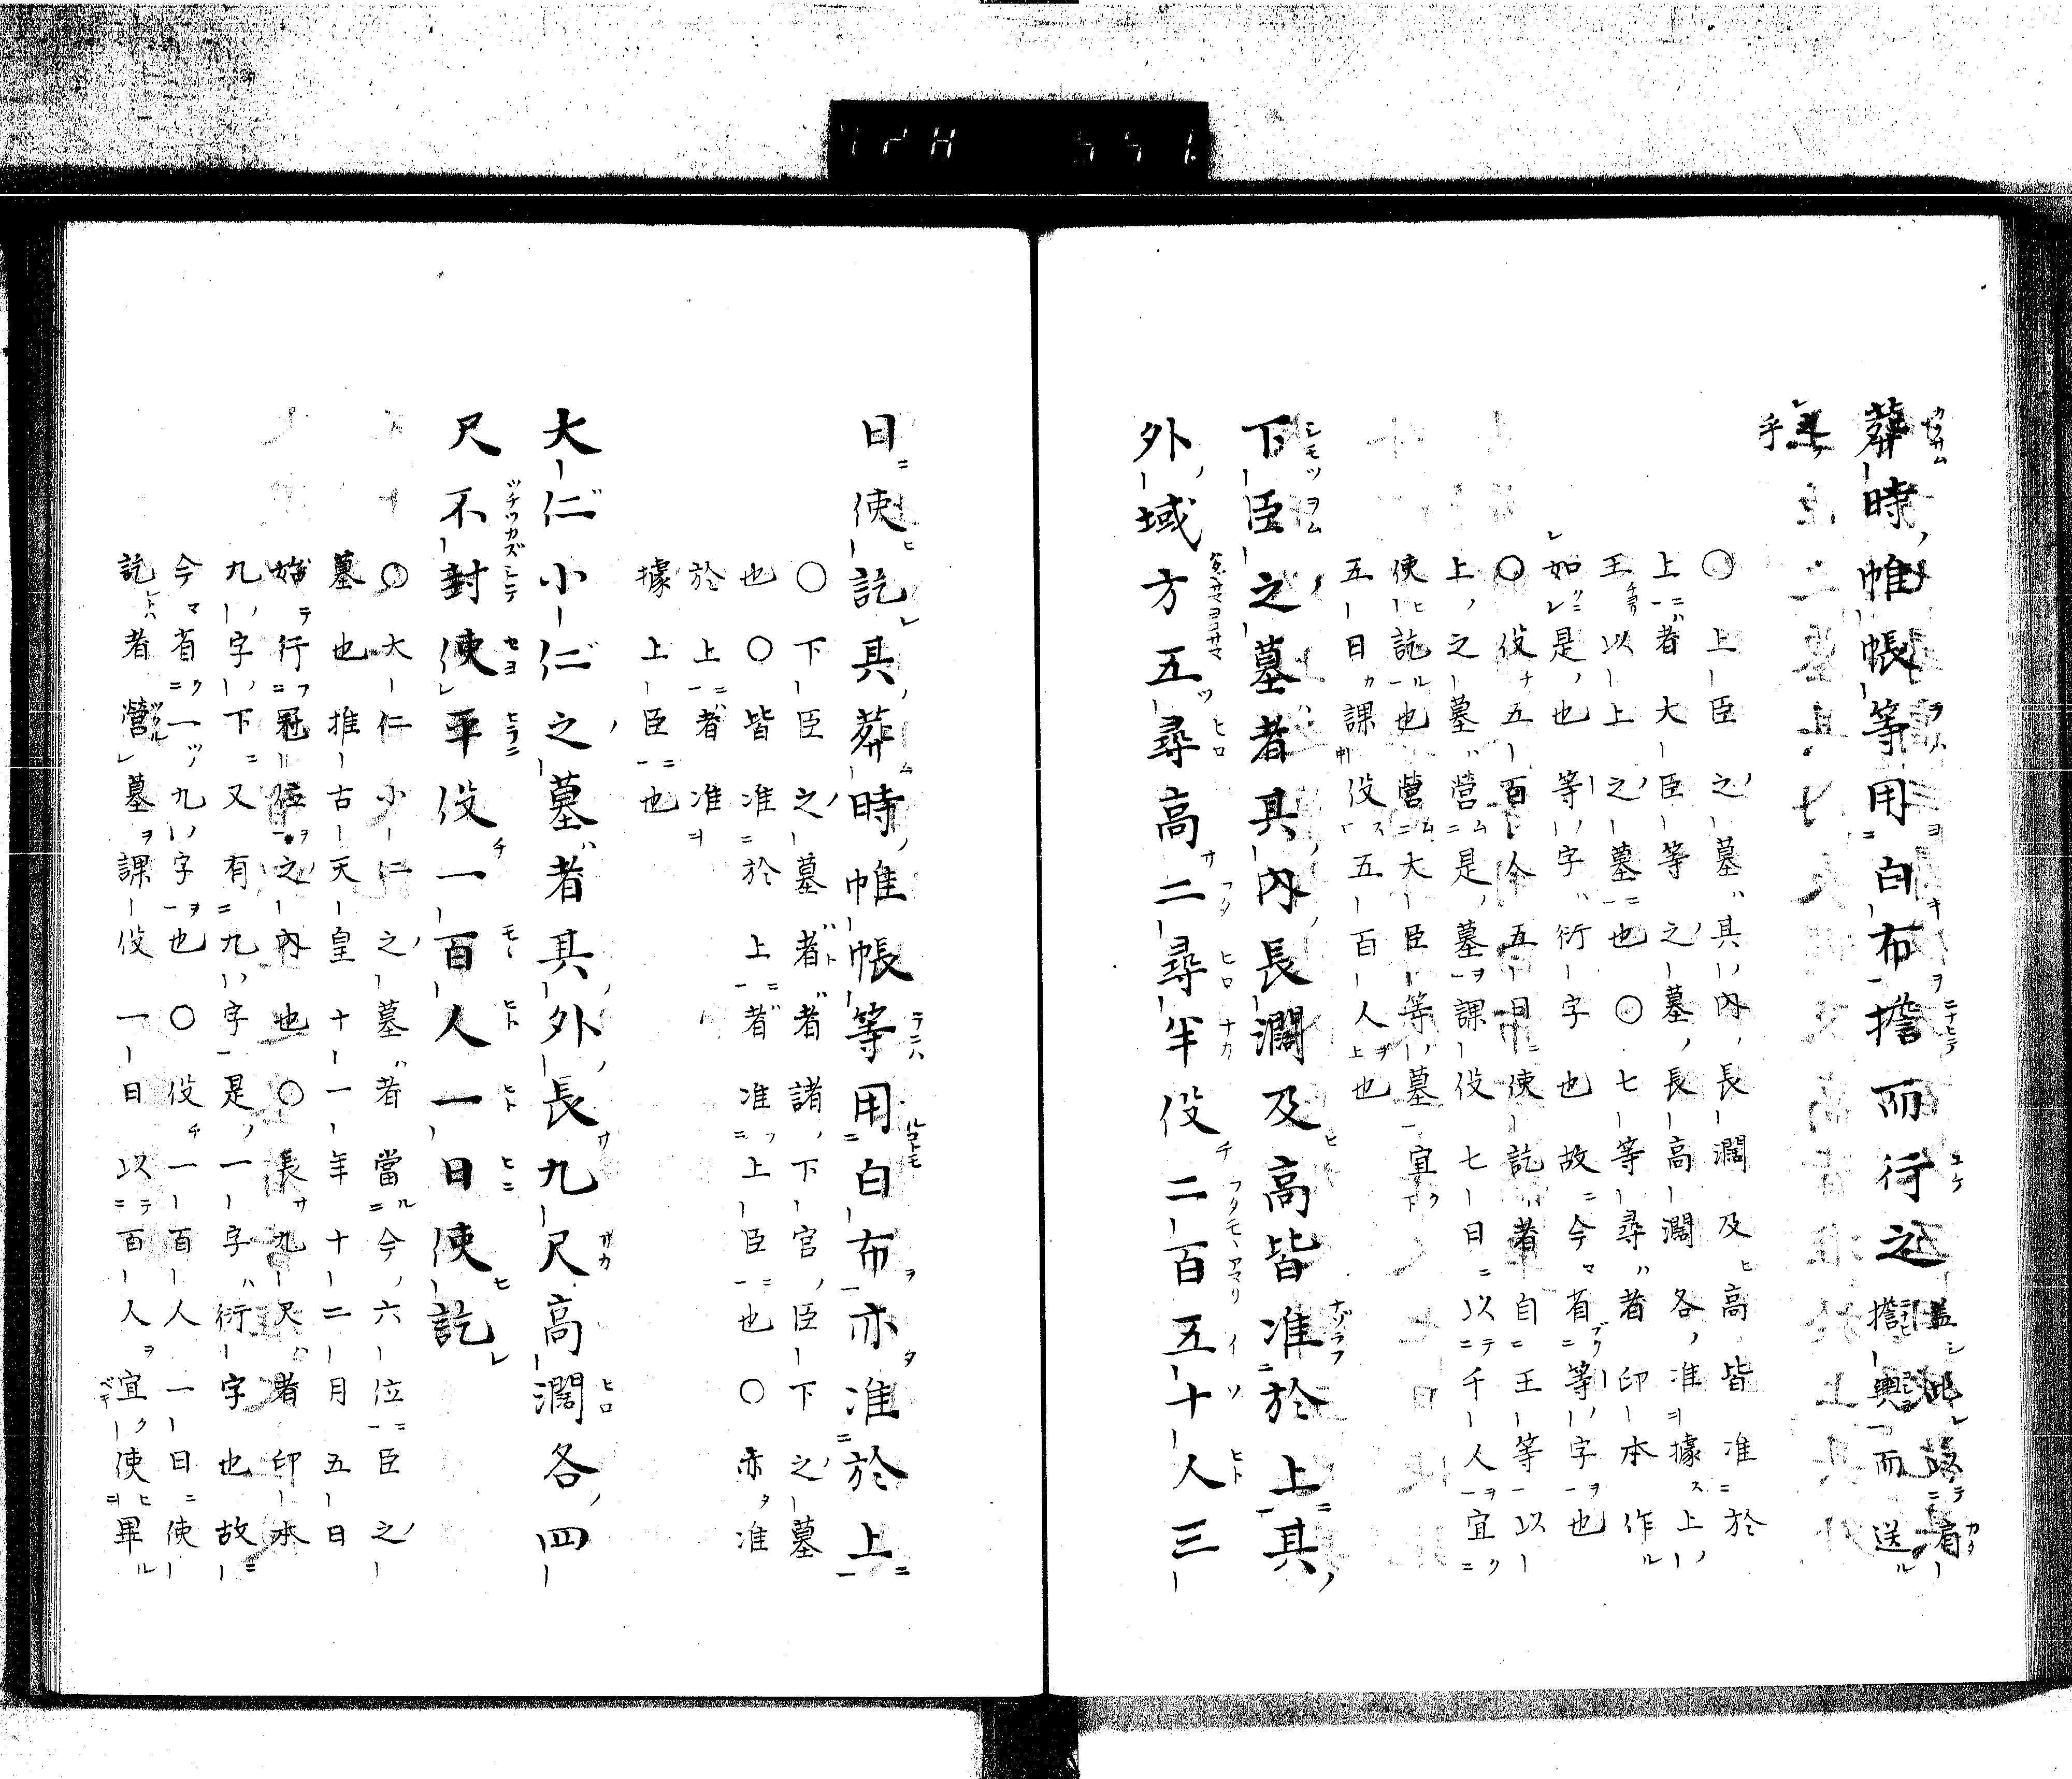 葬時帷帳等用白布擔而行之蓋此以肩擔輿而送
之乎
○上臣之墓其內長濶及高皆准於
上者大臣等之墓長高濶各准據上
王以上之墓也○七等尋者印本作
如是也等字衍字也故今省等字也
○役五百人五日使訖者自王等以
上之墓營是墓課役七日以千人宜
使訖也營大臣等墓宜
五日課役五百人也
下臣之墓者其內長濶及高皆准於上其
外域方五尋高二尋半役二百五十人三
日使訖其葬時帷帳等用白布亦准於上
○下臣之墓者者諸下官臣下之墓
也○皆准於上者准上臣也○亦准
於上者准
據上臣也
大仁小仁之墓者其外長九尺高濶各四
尺不封使平役一百人一日使訖
○大仁小仁之墓者當今六位臣之
墓也推古天皇十一年十二月五日
始行冠位之內也○長九尺者印本
九字下又有九字是一字衍字也故
今省一九字也○役一百人一日使
訖者營墓課役一日以百人宜使畢